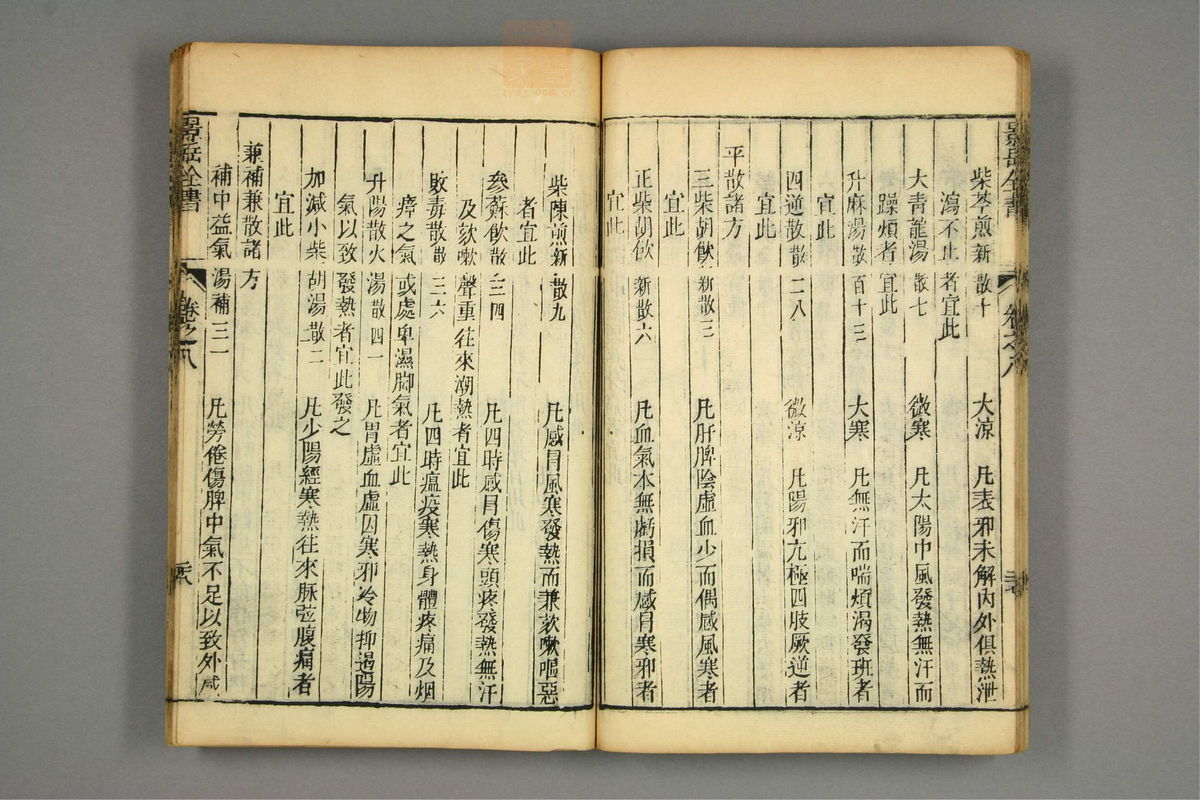 景岳全書
卷之八
柴芩煎新散十 大涼 凡表邪未解內外俱熱泄
瀉不止者宜此
大青龍湯散七 微寒 凡太陽中風發熱無汗而
躁煩者宜此
升麻湯散百十三 大寒 凡無汗而喘煩渴發斑者
宜此
四逆散散二八 微涼 凡陽邪亢極四肢厥逆者
宜此
平散諸方
三柴胡飲新散三 凡肝脾陰虛血少而偶感風寒者
宜此
正柴胡飲新散六 凡血氣本無虧損而感冒寒邪者
宜此
柴陳煎新散九 凡感冒風寒發熱而兼欬嗽嘔惡
者宜此
參蘇飲散三四 凡四時感冒傷寒頭疼發熱無汗
及欬嗽聲重往來潮熱者宜此
敗毒散散三六 凡四時瘟疫寒熱身體疼痛及烟
瘴之氣或處卑濕脚氣者宜此
升陽散火湯散四一 凡胃虛血虛因寒邪冷物抑遏陽
氣以致發熱者宜此發之
加減小柴胡湯散二 凡少陽經寒熱往來脉弦腹痛者
宜此
兼補兼散諸方
補中益氣湯補三一 凡勞倦傷脾中氣不足以致外感
景岳全書
卷之八